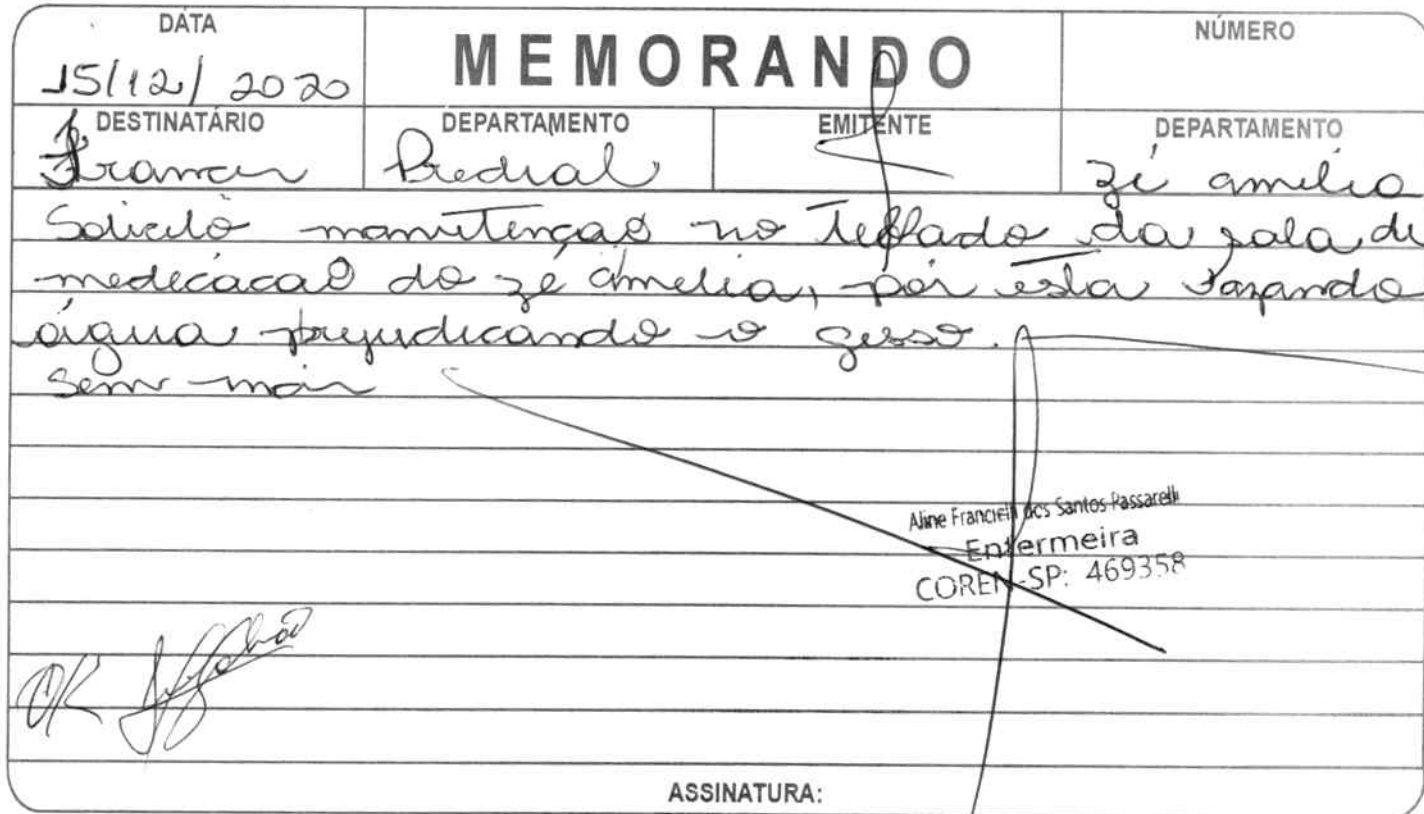 DATA
15/12/2020
MEMORANDO
NÚMERO
DESTINATÁRIO
DEPARTAMENTO
Predial
EMITENTE
DEPARTAMENTO
zé amelia
Solicito manutenção no telhado da sala de
medecacaõ do zé amelia, por esta vazando
água prejudicando o gesso.
Sem mais
Aline Francielli dos Santos Passarelli
Enfermeira
COREN-SP: 469358
OK
ASSINATURA: